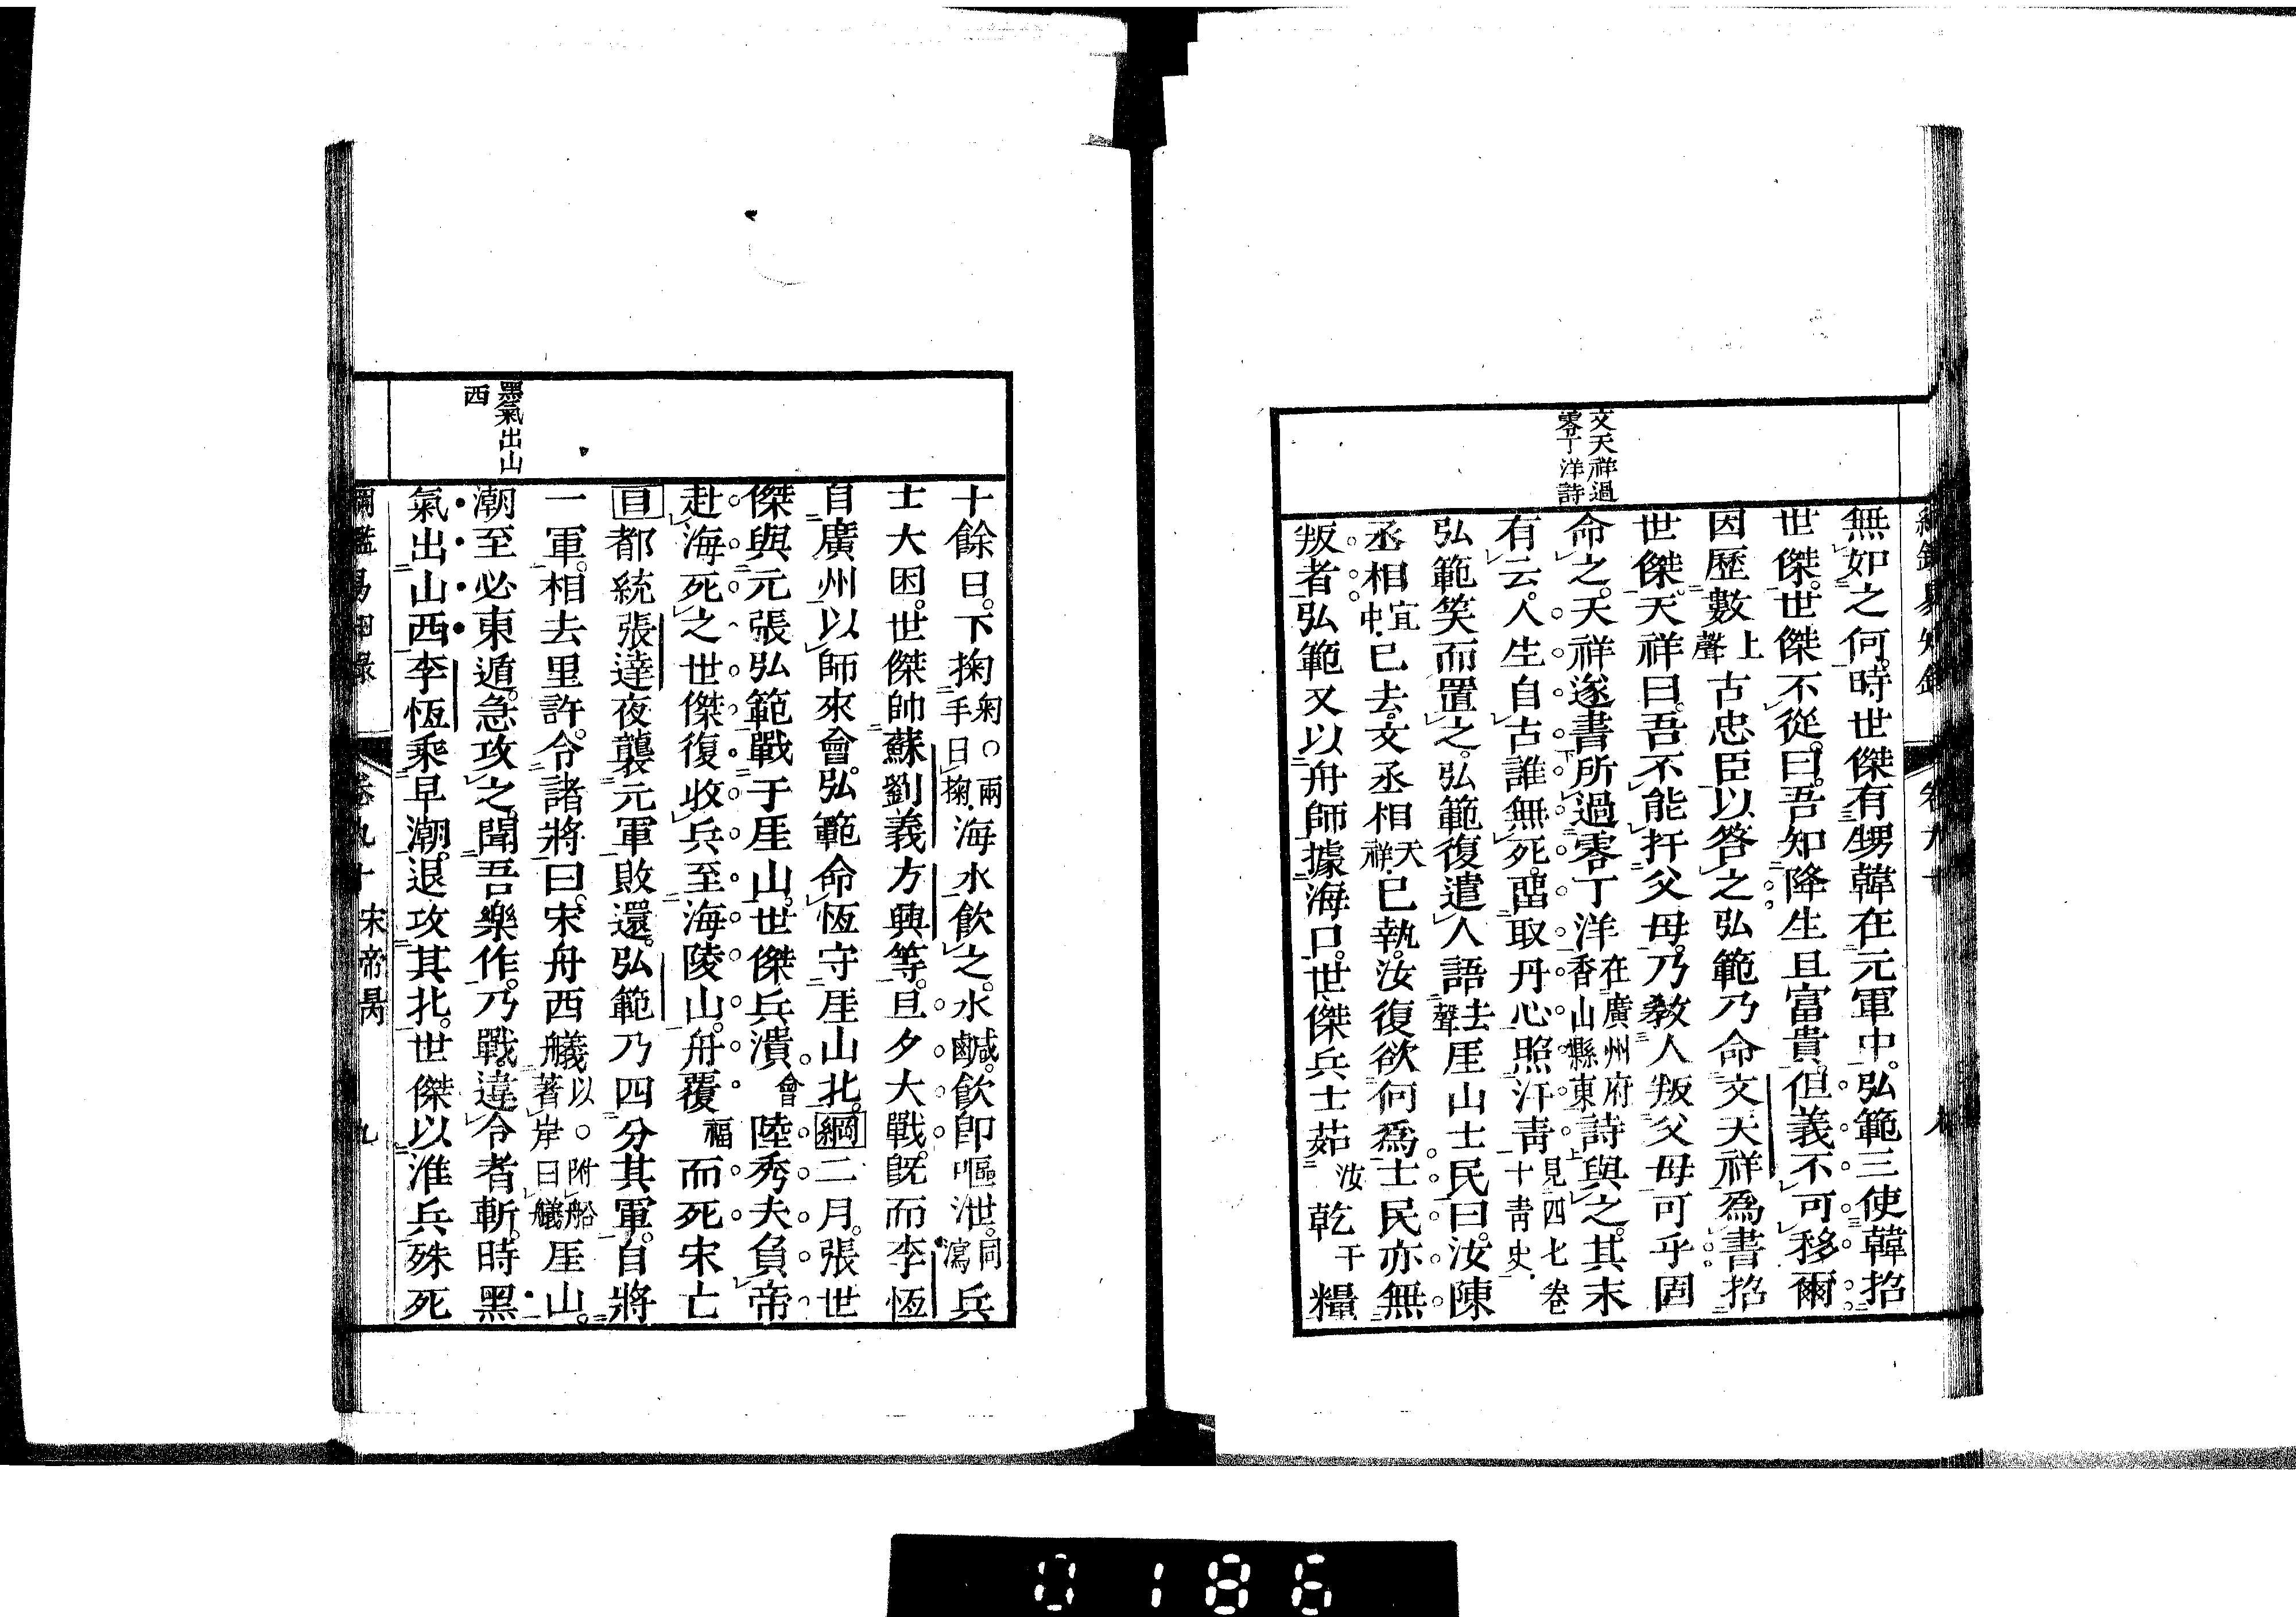 文天祥過
零丁洋詩
無如之何。時世傑有甥韓在元軍中。弘範三使韓招
世傑。世傑不從。曰。吾知降生且富貴。但義不可移爾
因歷數上聲古忠臣以答之弘範乃命文天祥爲書招
世傑。天祥曰。吾不能扞父母。乃敎人叛父母可乎固
命之。天祥遂書所過零丁洋在廣州府香山縣東詩與之。其末
有云。人生自古誰無死。留取丹心照汗靑見四七卷十靑史.
弘範笑而置之。弘範復遣人語去聲厓山士民曰。汝陳
丞相宜中.已去。文丞相天祥.已執。汝復欲何爲士民亦無
叛者弘範又以舟師據海口。世傑兵士茹汝乾干糧
十餘日。下掬匊○兩手日掬.海水飮之。水鹹。飮卽嘔泄。同瀉兵
士大困。世傑帥蘇劉義方興等。旦夕大戰。旣而李恆
自廣州以師來會。弘範命恆守厓山北。綱二月。張世
傑與元張弘範戰于厓山。世傑兵潰會陸秀夫負帝
赴海死之世傑復收兵至海陵山。舟覆福而死宋亡
目都統張達夜襲元軍敗還。弘範乃四分其軍。自將
一軍。相去里許。令諸將曰。宋舟西艤以○附船著岸曰艤厓山。
潮至必東遁。急攻之。聞吾樂作。乃戰。違令者斬。時黑
氣出山西李恆乘早潮。退攻其北。世傑以淮兵殊死
黑氣出山
西
卷九十 宋帝昺 九